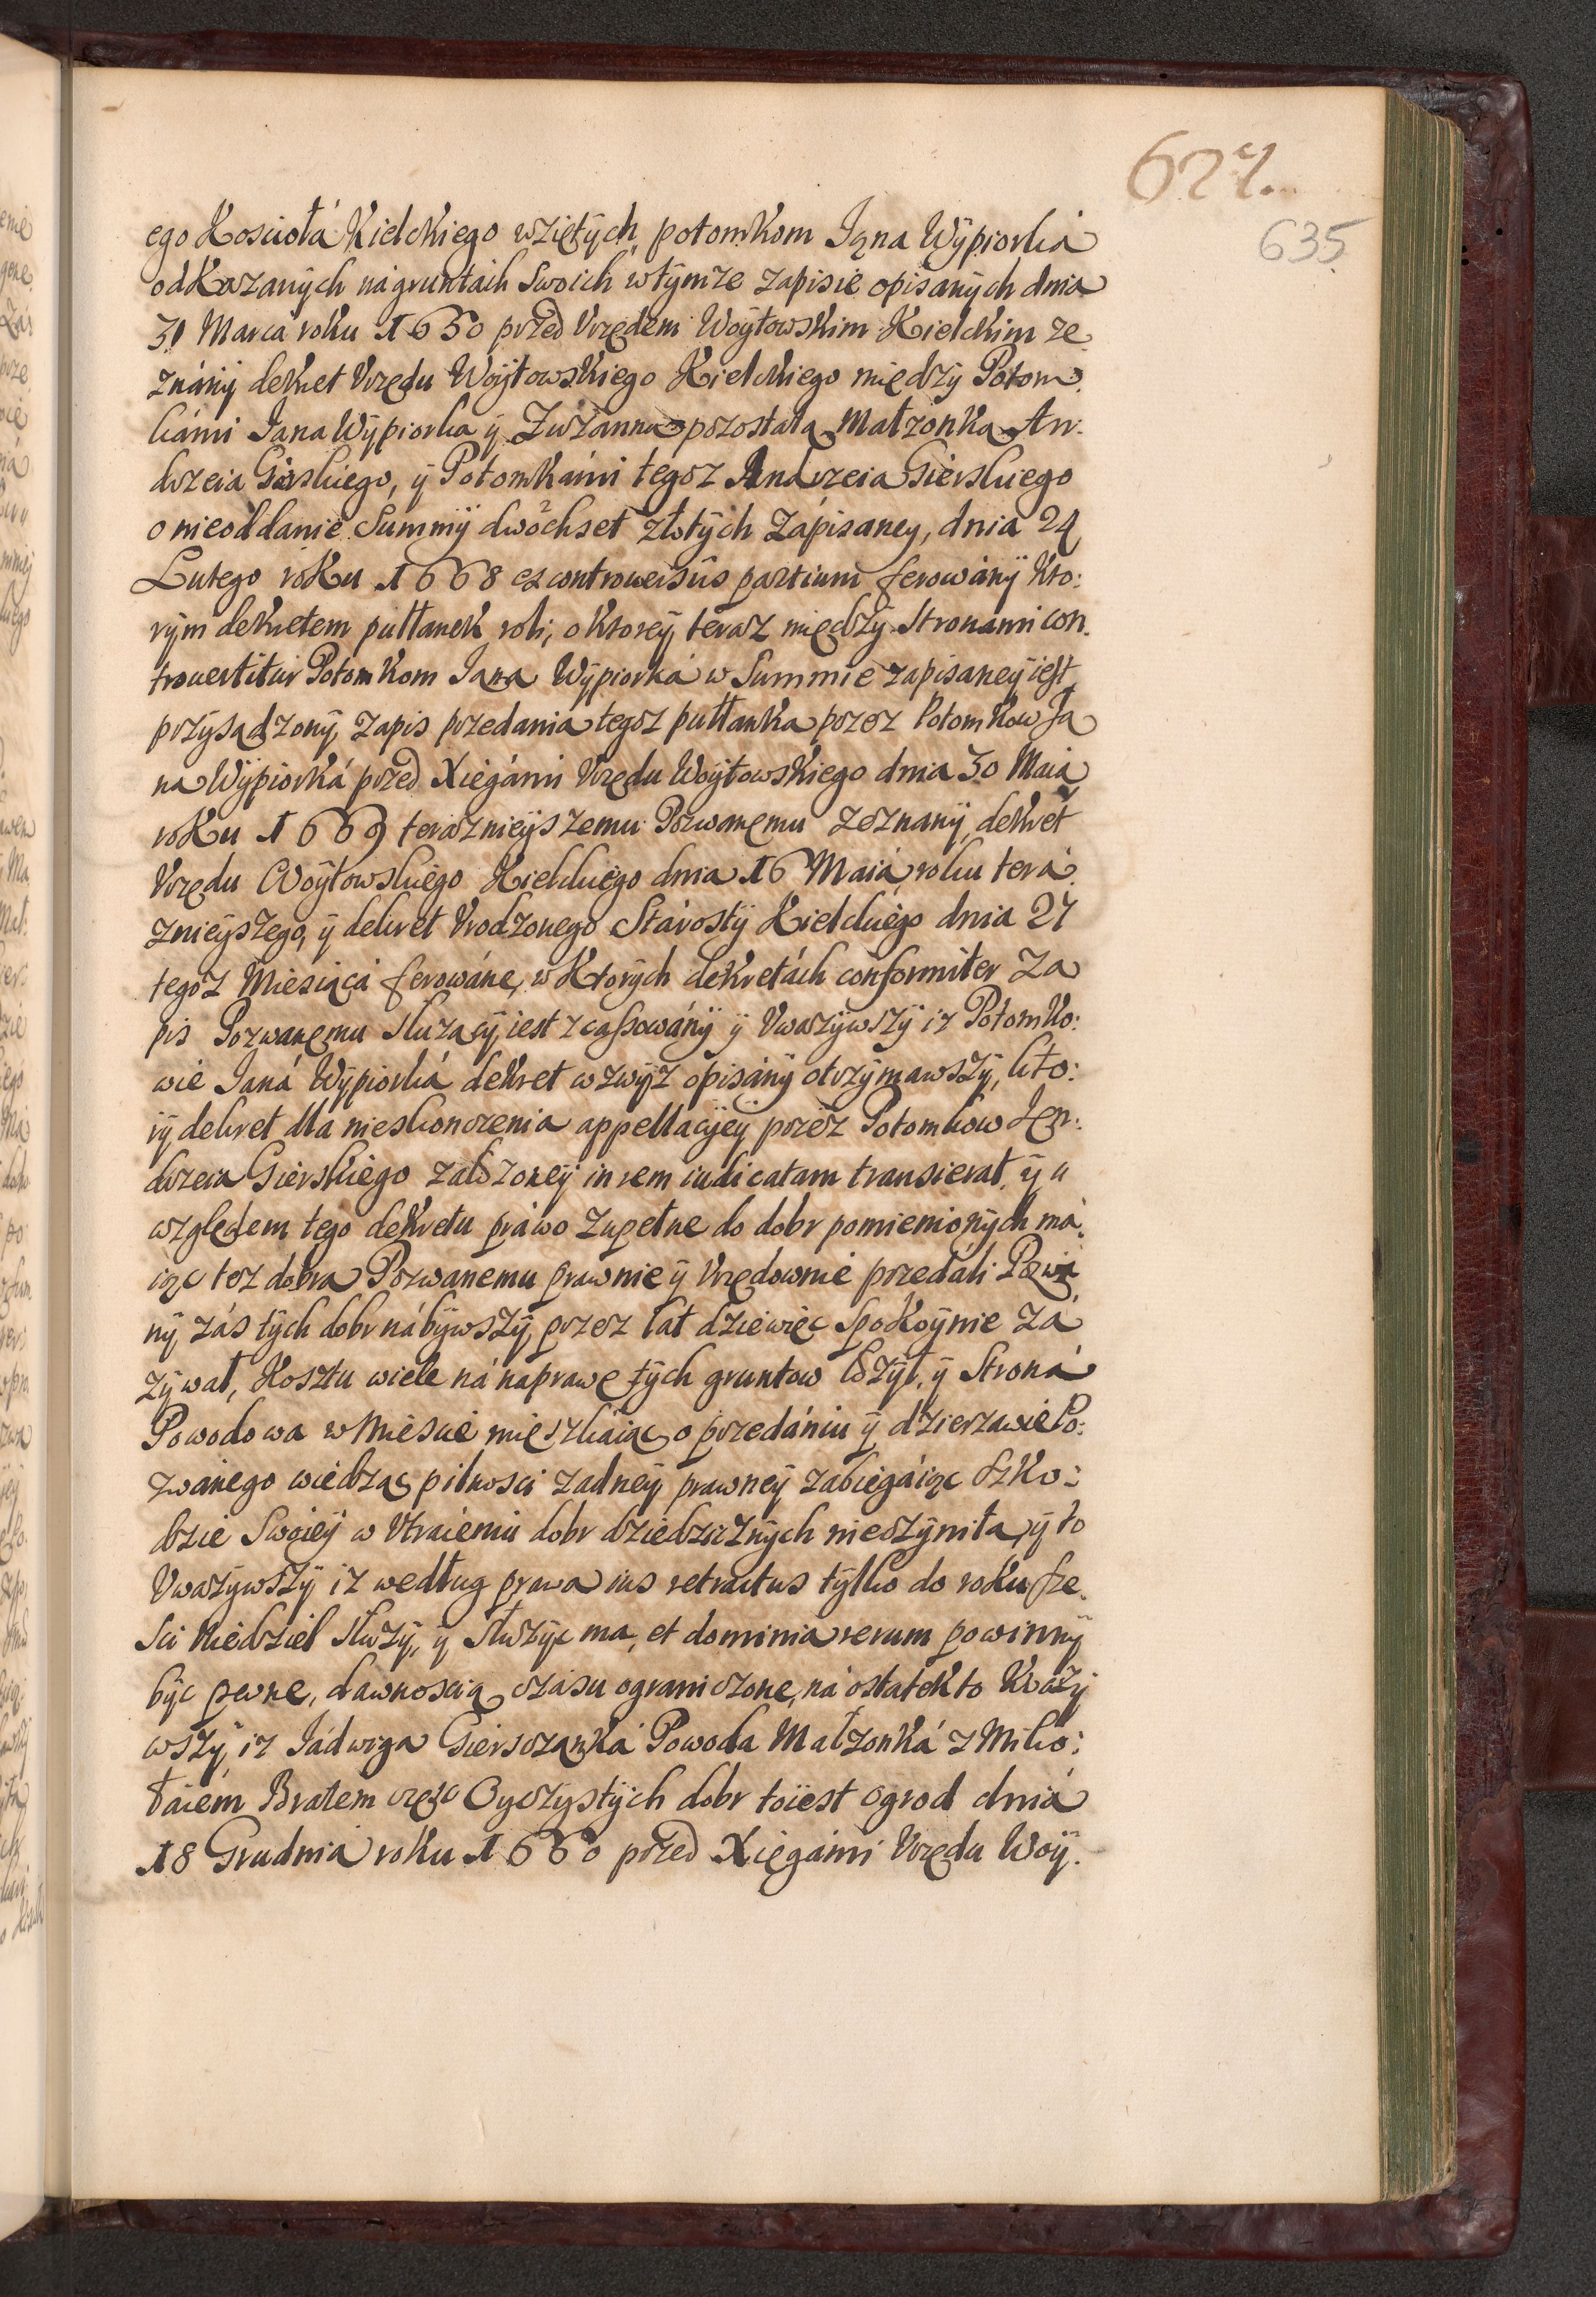 627.
635
ego Kosciołá Kielckiego wziętých, potomkom Iana Wýpiorka
odkazanych na gruntách Swoich w týmze zapisie opisaných dnia
31 Marca roku 1650 przed Vrzędem Woytowskim Kielckim ze
znány dekret Vrzędu Woytowskiego Kielckiego między Potom
kámi Iana Wýpiorka ÿ Zuzanną pozostałą Małzonką An:
drzeia Gierskiego, ÿ Potomkámi tegoz Andrzeia Gierskiego
o nieoddanie Summÿ dwochset złotých zápisaney, dnia 24
Lutego roku 1668 ex controuersiis partium ferowánÿ kto:
rým dekretem pułłanek roli, o ktorey teraz między Stronami con
trouertitur Potomkom Iana Wýpiorká w Summie zapisaney iest
przýsądzoný, zapis przedania tegoz pułłanka przez Potomkow Ia
na Wÿpiorká przed Xięgámi Vrzędu Woýtowskiego dnia 30 Maia
roku 1669 teraznieyszemu Pozwanemu zeznaný, dekret
Vrzędu Woytowskiego Kielckiego dnia 16 Maiá roku terá
znieyszego, ÿ dekret Vrodzonego Stárostÿ Kielckiego dnia 27
tegoz Miesiącá ferowáne, w ktorých dekretách conformiter za
pis Pozwanemu słuzacÿ, iest zcassowánÿ ÿ Vwazýwszÿ iz Potomko:
wie Ianá Wýpiorká dekret wzwÿz opisány otrzýmawszý, kto:
rÿ dekret dla nieskonczenia appellacÿeÿ przez Potomkow Ien:
drzeia Gierskiego załozoneÿ in rem iudicatam transierat, ÿ u
względem tego dekretu práwo zupełne do dobr pomienioných má
iąc tez dobra Pozwanemu prawnie ÿ Vrzędownie przedáli. Pozwá
ný zás tých dobr nábýwszý, przez lat dziewięc spokoýnie zá
zýwał, Kosztu wiele ná naprawę tých gruntow łozÿł, ÿ Stroná
Powodowa w Miescie mieszkaiąc o przedániu ÿ dzierzawie Po:
zwánego wiedząc pilnosci zadneÿ prawneÿ zabiegáiąc szko:
dzie Swoieÿ w Vtraceniu dobr dziedzicznÿch nieczÿniła, ÿ to
Vwazýwszÿ iz według prawa ius retractus týlko do roku sze
sci Niedziel słuzý, ÿ słuzÿc ma, et dominia rerum powinnÿ
bÿc pewne, dawnoscią czasu ograniczone, ná ostatek to Vwazÿ
wszÿ, iz Iádwiga Gierszanká Powoda Małzonká z Miko:
łaiem Bratem częsc Oyczystÿch dobr toiest ogrod dniá
18 Grudnia roku 1660 przed Xięgámi Vrzędu Woÿ.